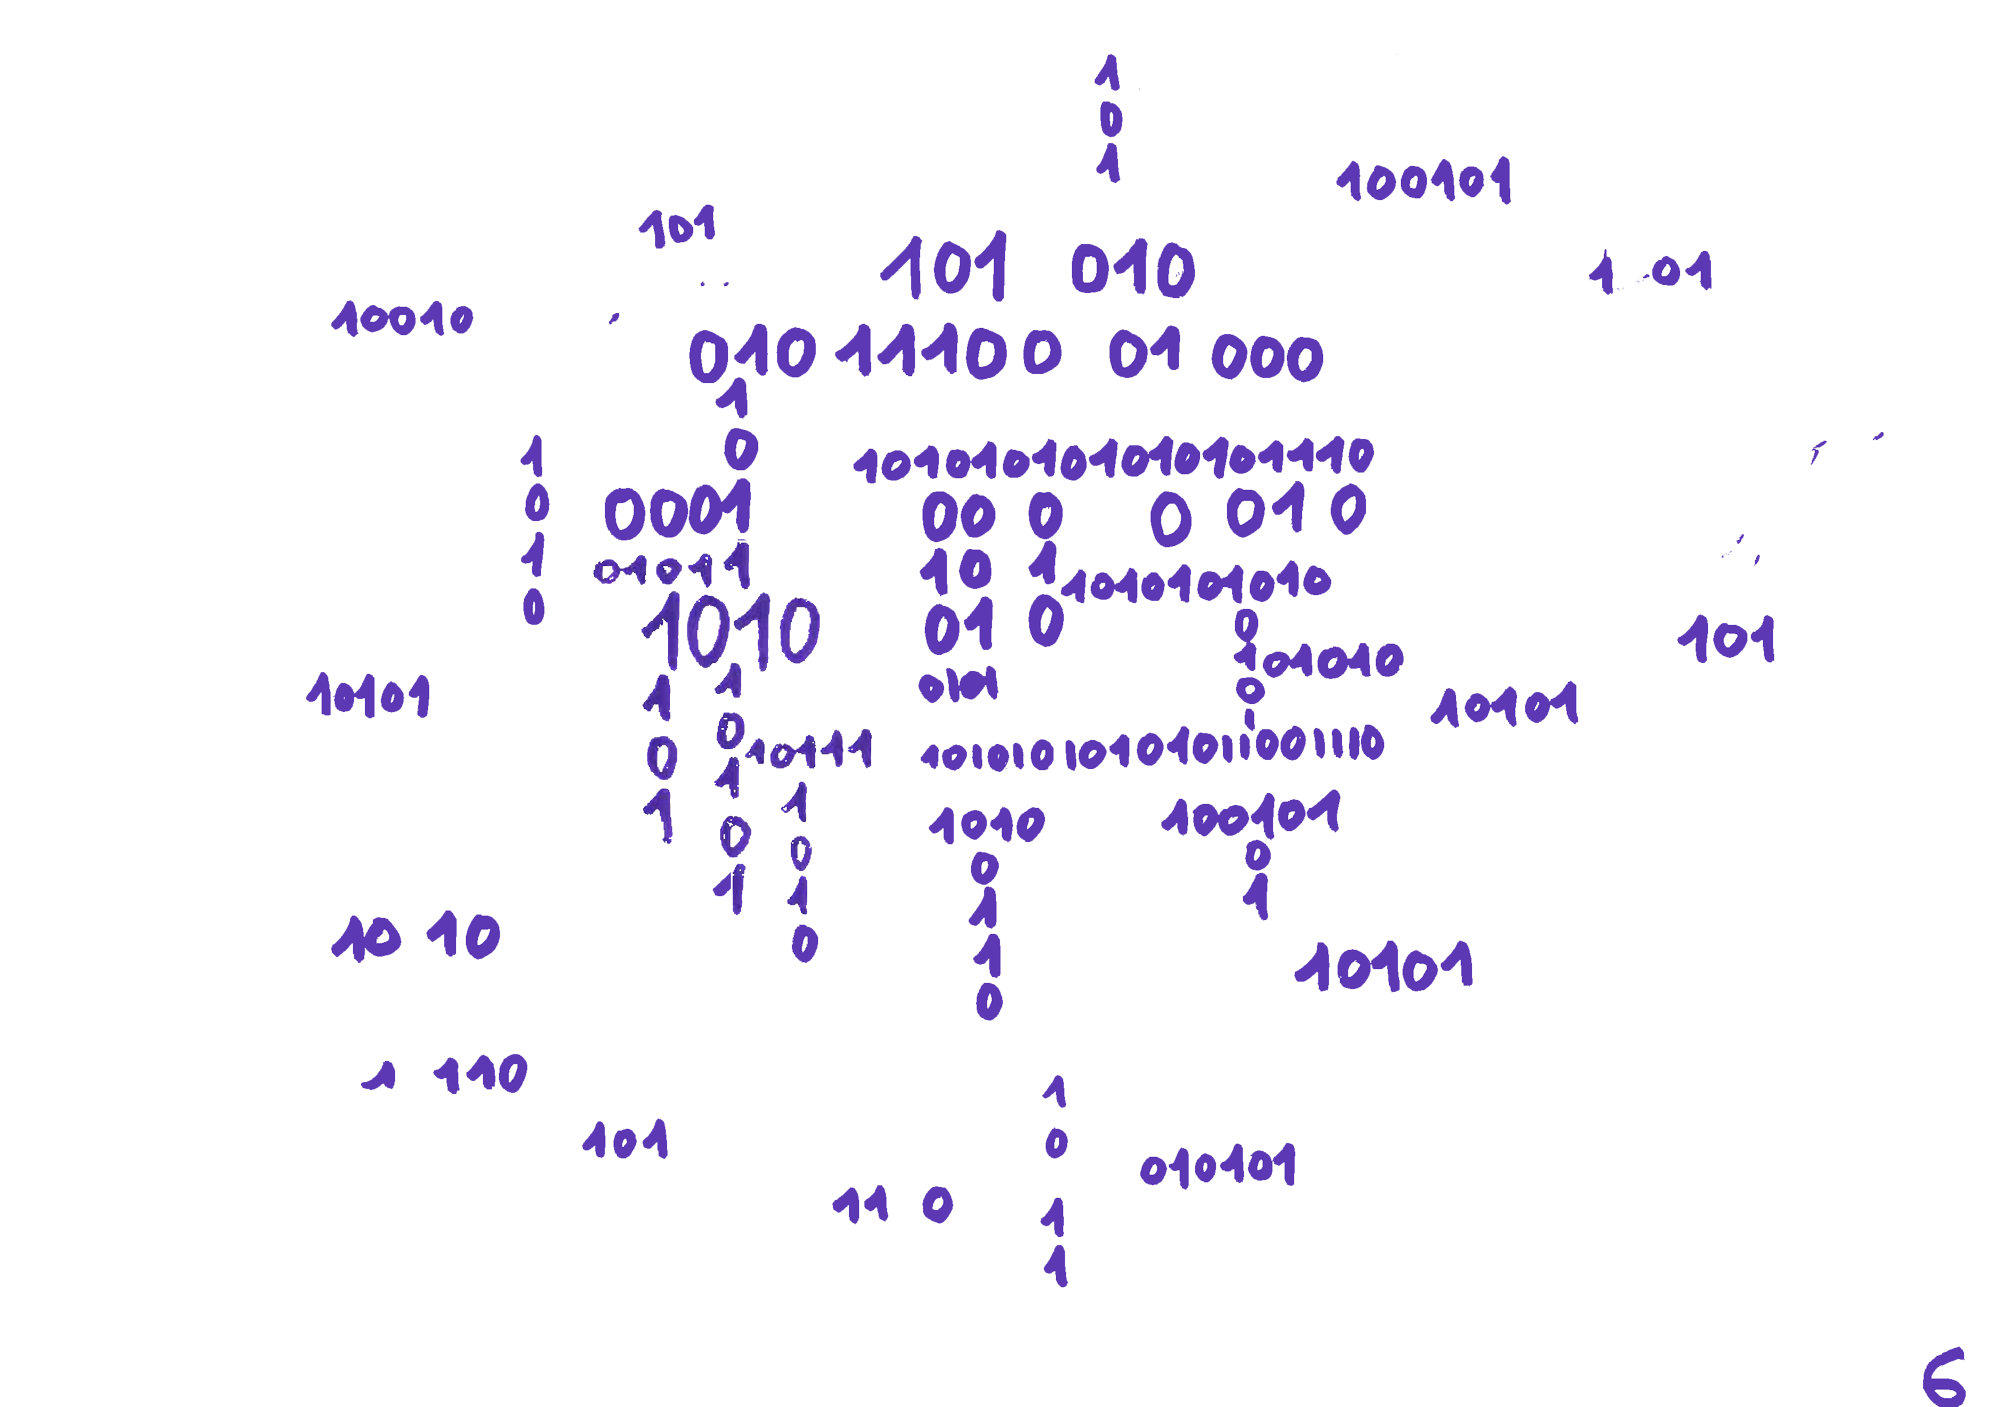 1
0
1
100101
101
101 010
1 01
10010
010 11100 01 000
1
0
1
0
1
0
10101010101010101110
0001
00 0 0 010
01011
10 1
1010101010
1010
01 0
0
101010
0
1
101
10101
0101
10101
1
0
1
1
0
1
0
1
10111
1010101010101011001110
1
0
1
0
1010
0
1
1
0
100101
0
1
10 10
10101
1 110
101
1
0
1
1
010101
11 0
6